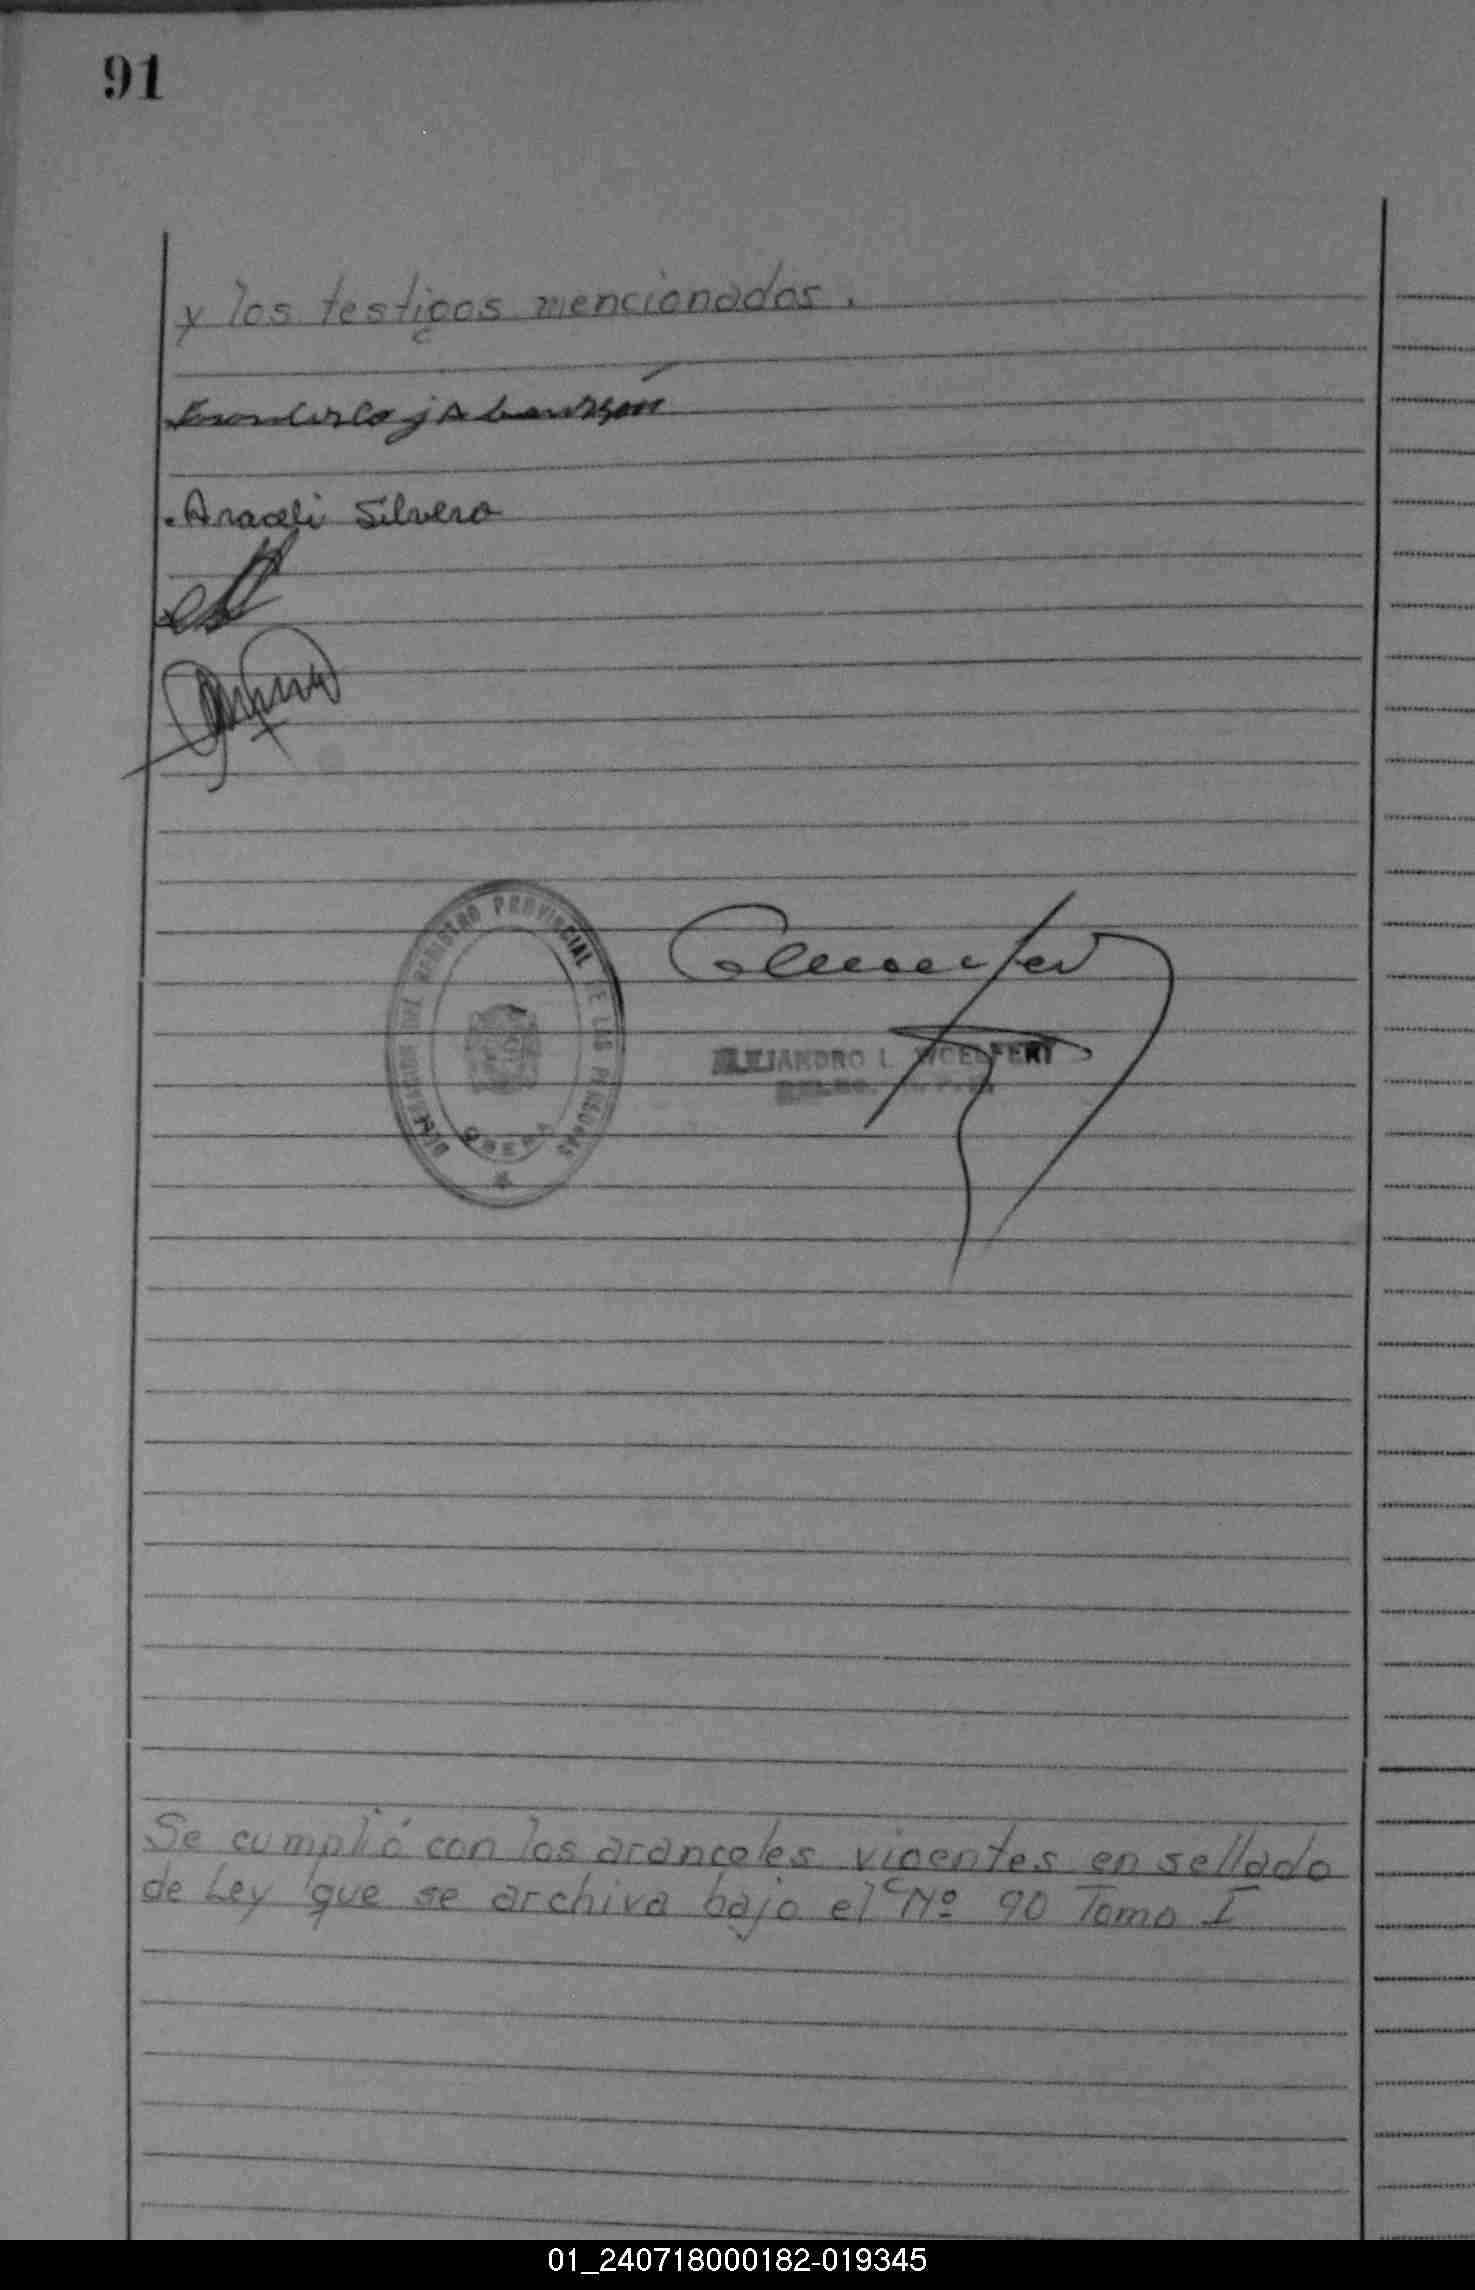 91
y los testigos mencionados.
Araceli Silvero
DELEGACION DEL REGISTRO PROVINCIAL DE LAS PERSONAS
OBERA
ALEJANDRO L. WOELFERT
Se cumplió con los aranceles vigentes en sellado
de Ley que se archiva bajo el Nº 90 Tomo I
01_240718000182-019345